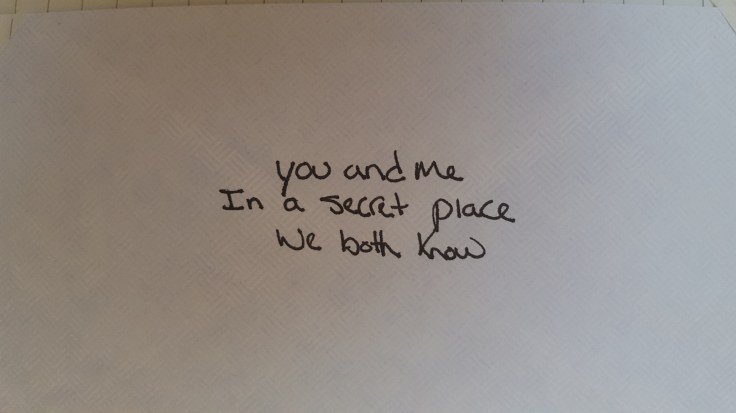 you and me
In a secret place
We both know